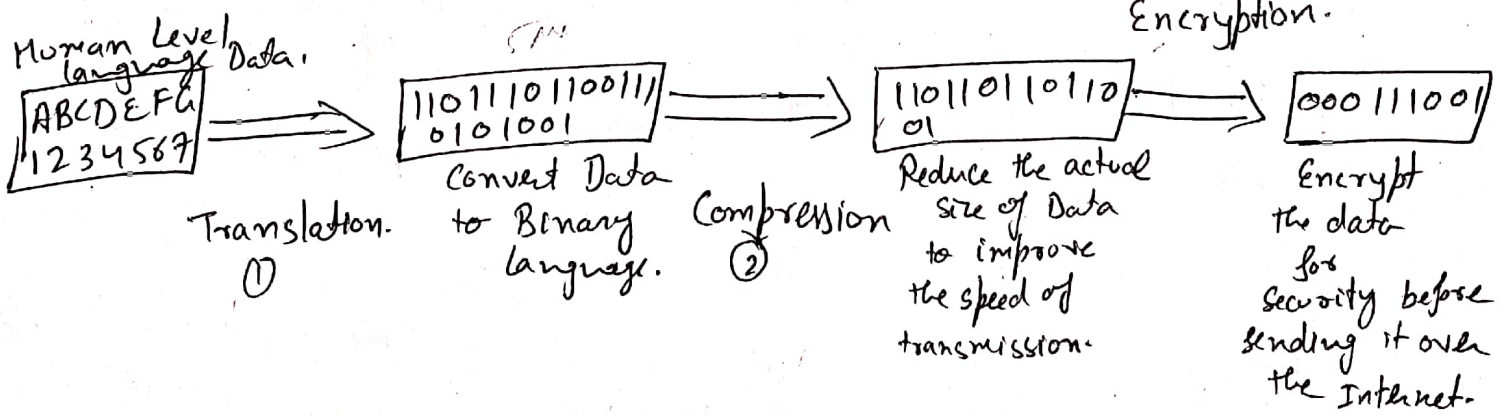 Human Level
language Data.
ABCDEFG
1234567
Translation.
①
1101110110011 1
0101001
Convert Data
to Binary
language.
Compression
②
110110110110
01
Reduce the actual
size of Data
to improve
the speed of
transmission.
Encryption.
000111001
Encrypt
the data
for
security before
sending it over
the Internet.